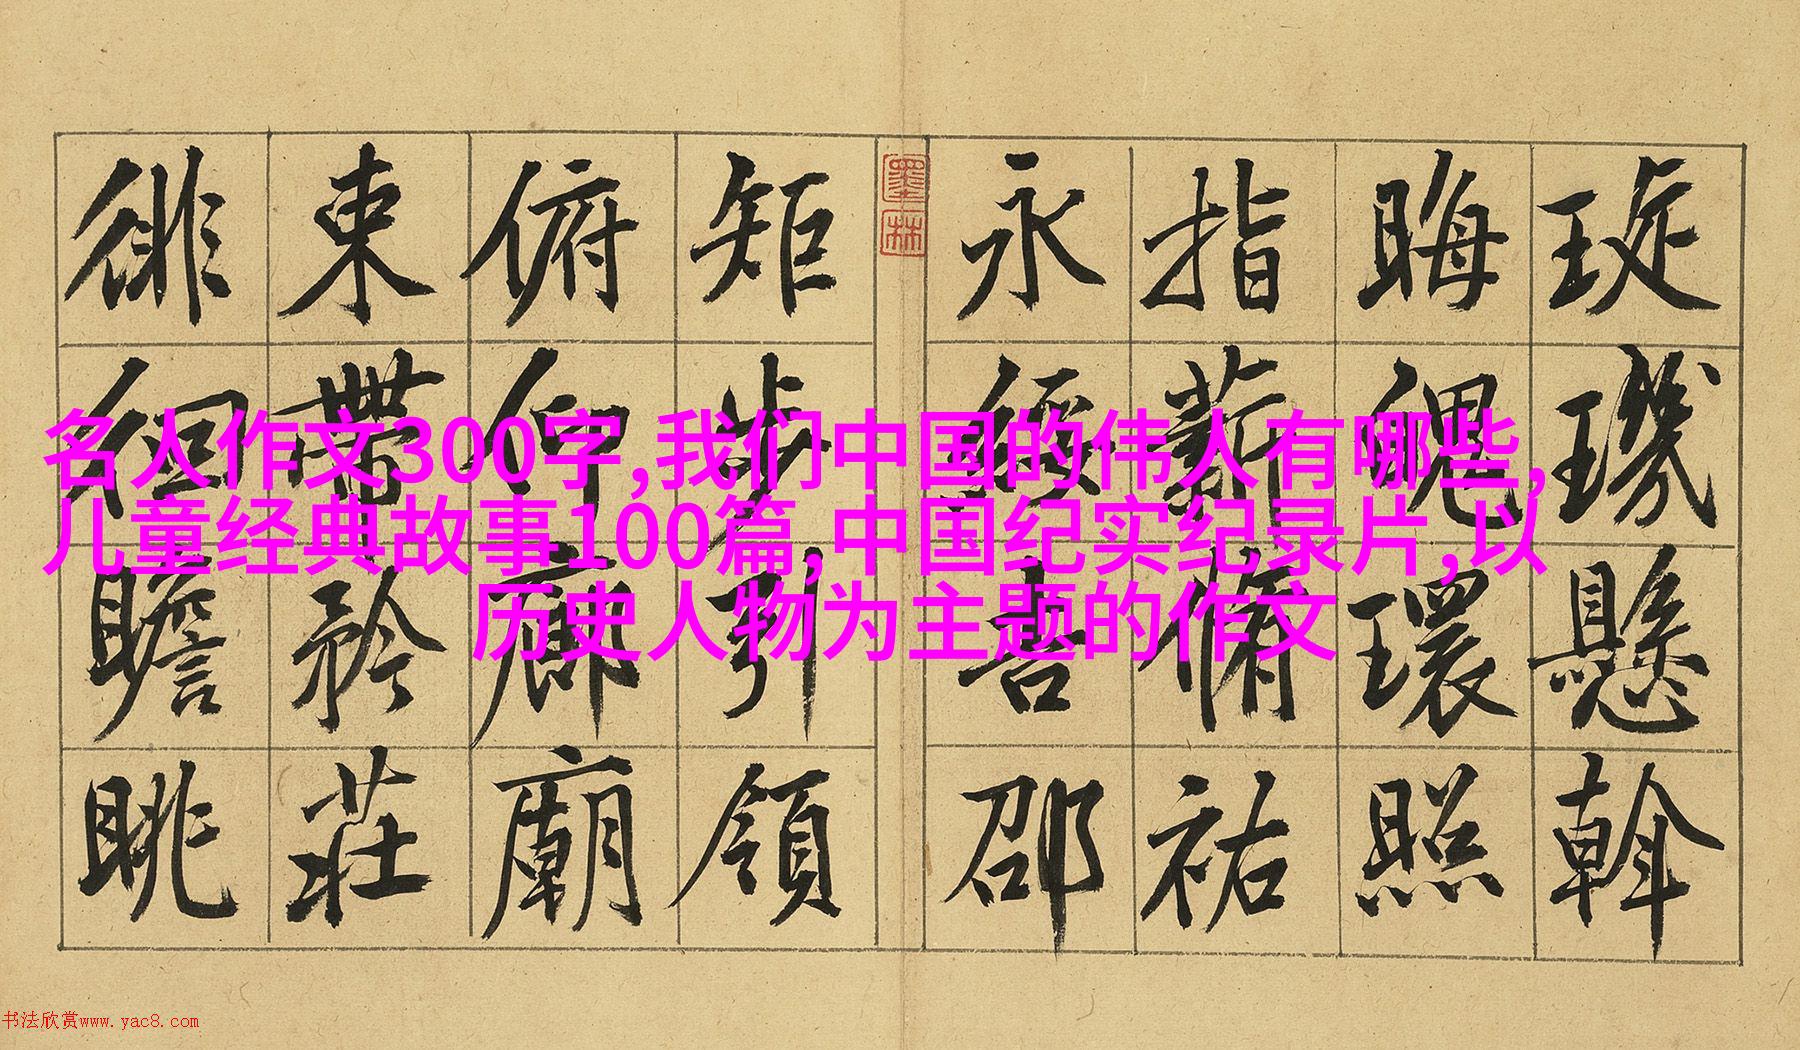 璇璣懸斡
晦魄環照
指薪脩祐
永綏吉邵
墨林
矩步引領
俯仰廊廟
束帶矜莊
徘徊瞻眺
名人作文300字,我们中国的伟人有哪些,
儿童经典故事100篇,中国纪实纪录片,以
历史人物为主题的作文
书法欣赏www.yac8.com